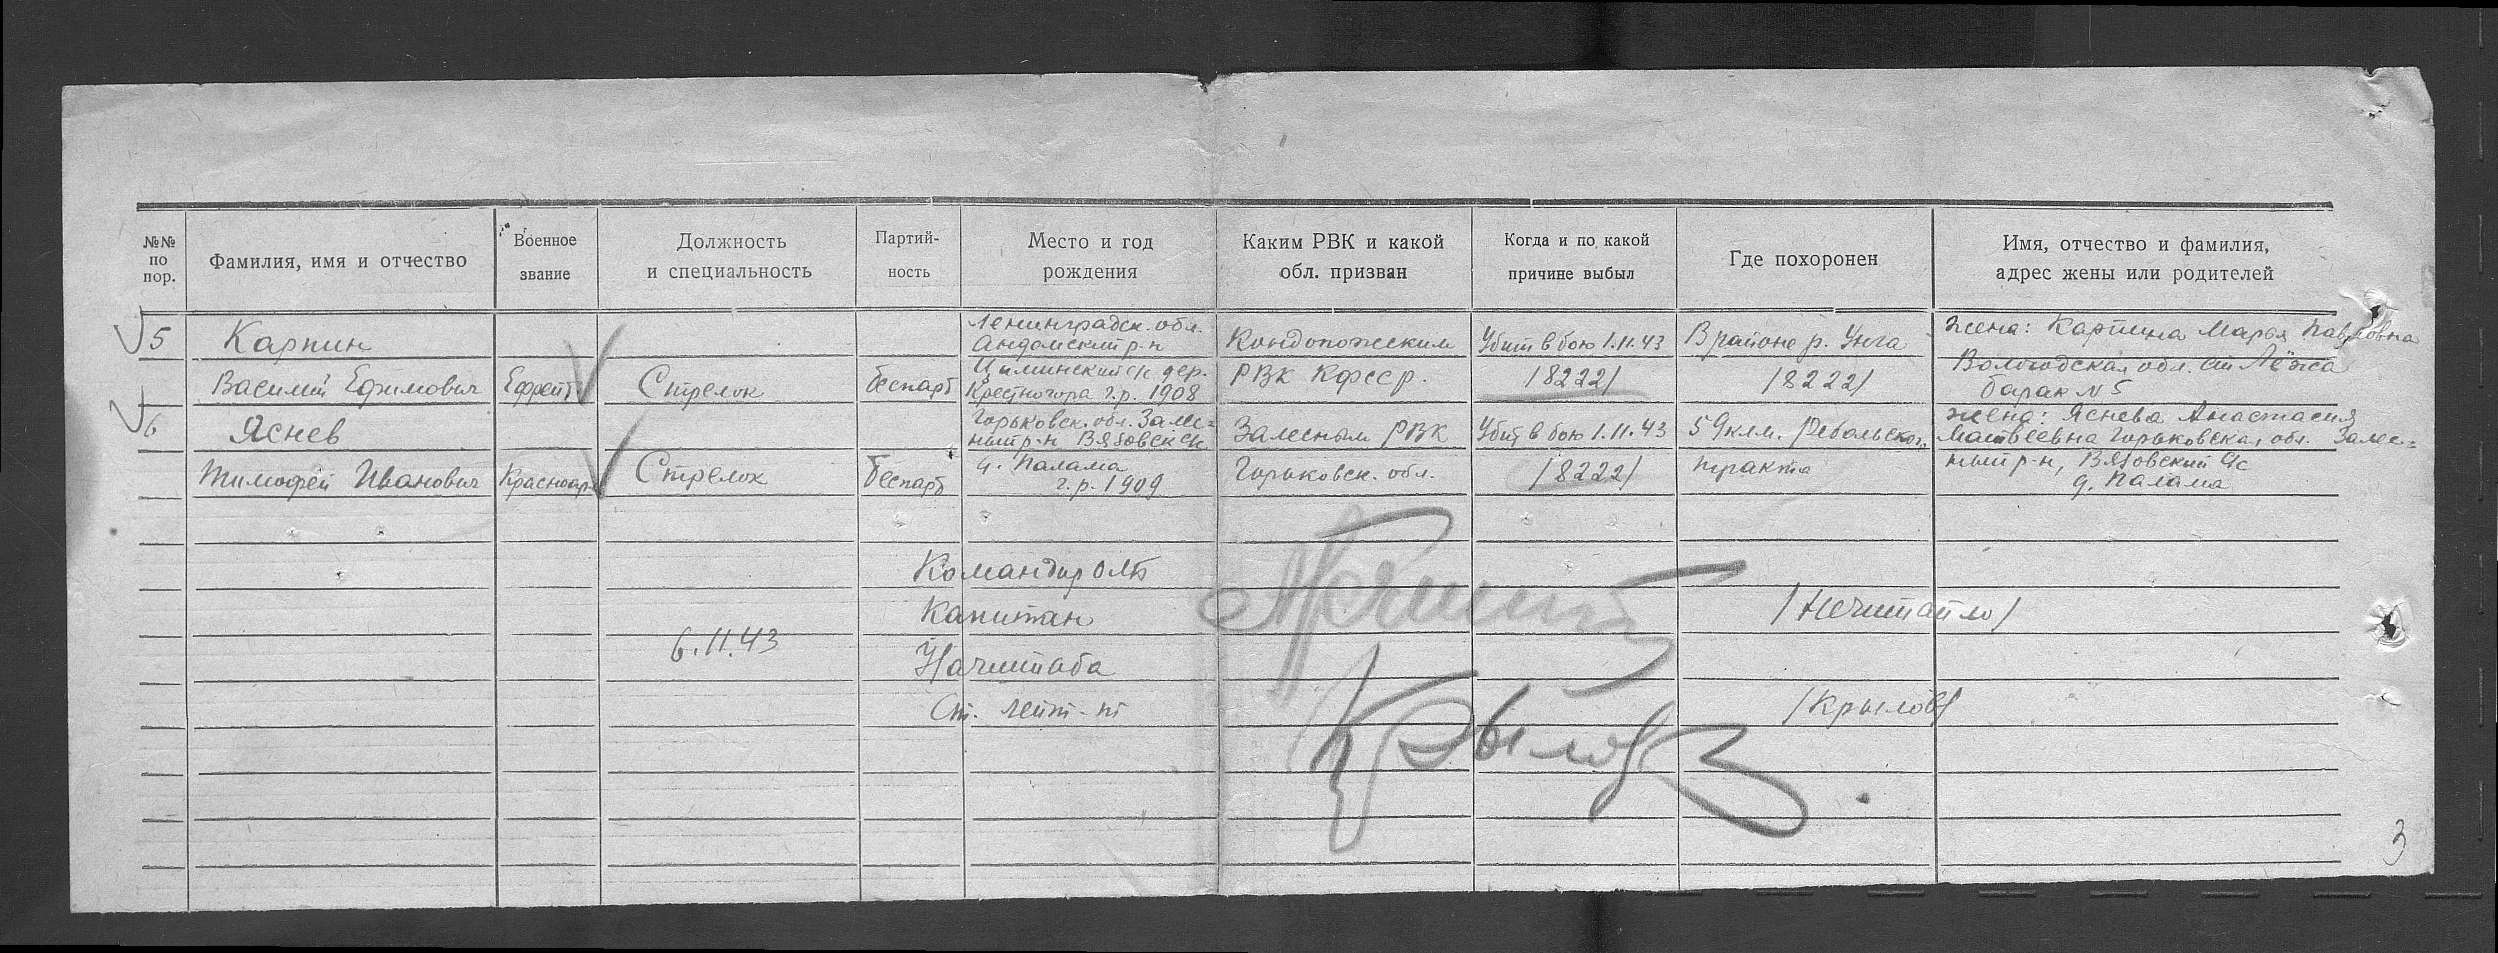 №№ по пор.
Фамилия, имя и отчество
Военное звание
Должность и специальность
Партий-ность
Место и год рождения
Каким РВК и какой обл. призван
Когда и по какой причине выбыл
Где похоронен
Имя, отчество и фамилия, адрес жены или родителей
5
Карпин
Василий Ефимович
Ефрейт
Стрелок
беспарт
Ленинградск. обл.
Андомский р-н
дер.
Крестногора г.р. 1908
Кондопожским
РВК КФССР.
Убит в бою 1.11.43
/8222/
В районе р. Унга
/8222/
жена: Карпина Марья Павловна
Вологодская обл. ст Лёжа
барак №5
6
Яснев
Тимофей Иванович
Красноар-
Стрелок
беспарт
Горьковск. обл. Залес=
ный р-н Вязовск
д. Палама
г.р. 1909
Залесным РВК
Горьковск. обл.
Убит в бою 1.11.43
/8222/
59 клм. Ребольског.
тракта
жена: Яснева Анастасия
Матвеевна Горьковская обл. Залес=
ный р-н, Вязовский с/с
д. Палама
Командир
Капитан
/Нечитайло/
6.11.43
Начштаба
Ст. лейт-нт
Крылов
/Крылов/
3